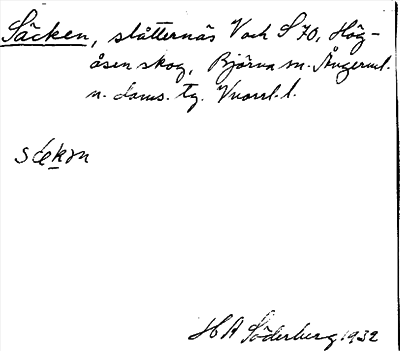 Säcken, slåtternäs V och S 70, Hög-
åsen skog, Björna sn. Ångerml.
n. doms. tg. Vnorrl. l.
säkɜn
H A Söderberg 1932